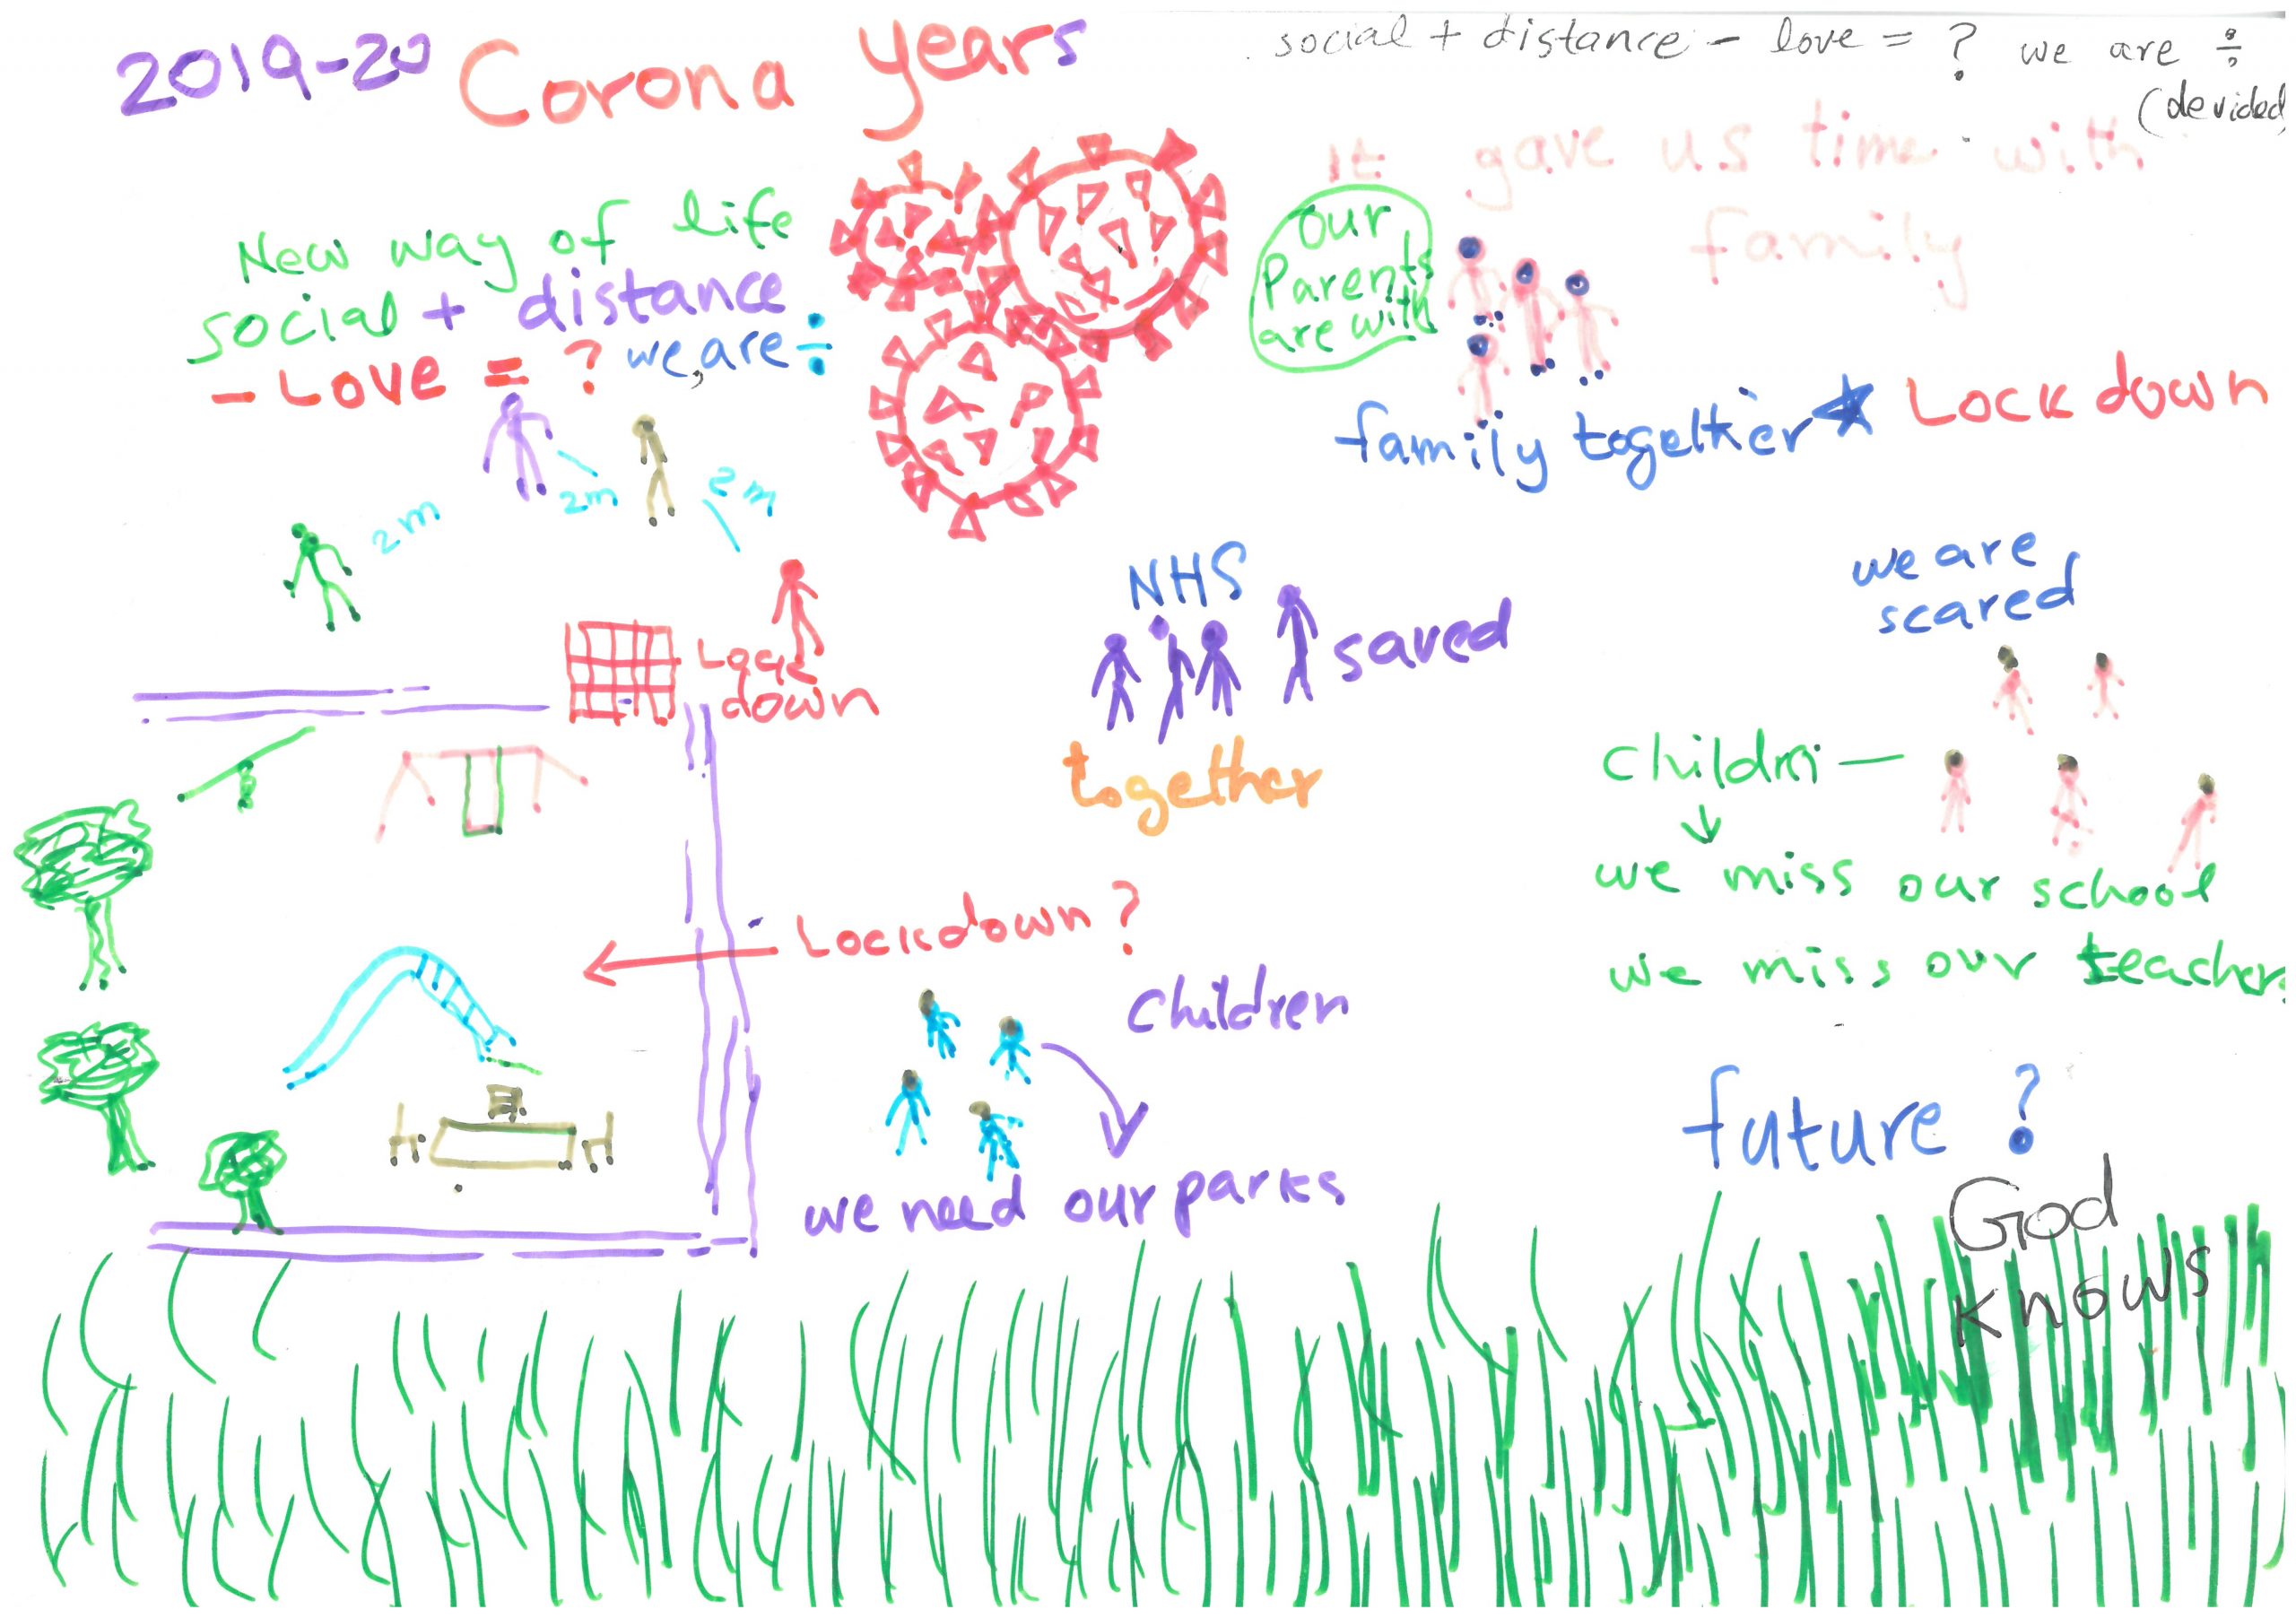 2019-20 Corona years
social + distance - love = ? we are ÷
(devided)
It gave us time with
family
New way of life
social + distance
- Love = ? we, are ÷
our
Parents
are with
family together ★ Lock down
2m
2m
2m
Lock
down
NHS
saved
together
we are
scared
Children
we miss our school
we miss our teacher
Lockdown ?
Children
we need our parks
future ?
God
knows